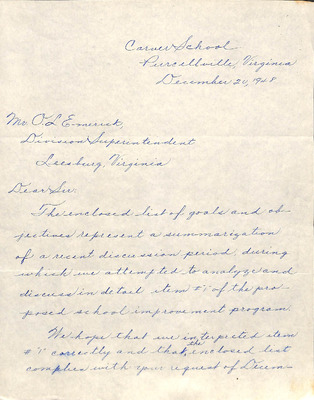 Carver School
Purcellville, Virginia
December 20, 1948
Mr. O. L. Emerick,
Division Superintendent
Leesburg, Virginia
Dear Sir:
The enclosed list of goals and ob-
jectives represent a summarization
of a recent discussion period, during
which we attempted to analyze and
discuss in detail item #1 of the pro-
posed school improvement program.
We hope that we interpreted item
#"1" correctly and that the enclosed list
complies with your request of Decem-